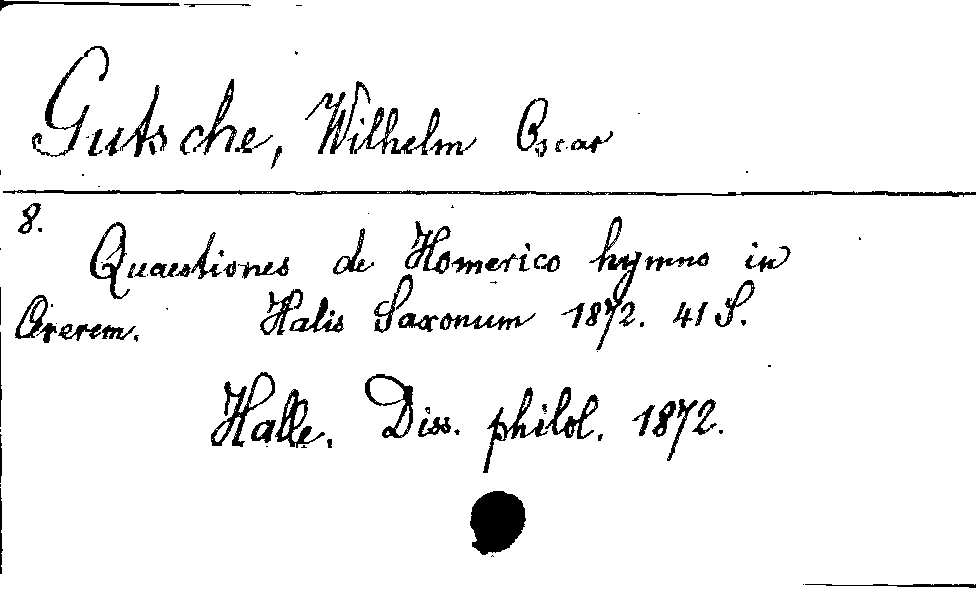 Gutsche, Wilhelm Oscar
8.
Quaestiones de Homerico hymno in
Cererem. Halis Saxonum 1872. 41 S.
Halle, Diss. philol. 1872.